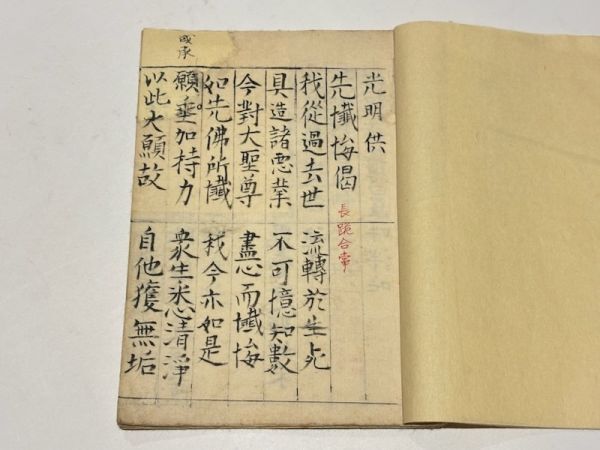 光明供
先懺悔偈
長跪合掌
我從過去世 流轉於生死
具造諸悪業 不可憶知數
今對大聖尊 盡心而懺悔
如先佛所懺 我今亦如是
或承
願垂加持力 衆生悉清淨
以此大願故 自他獲無垢